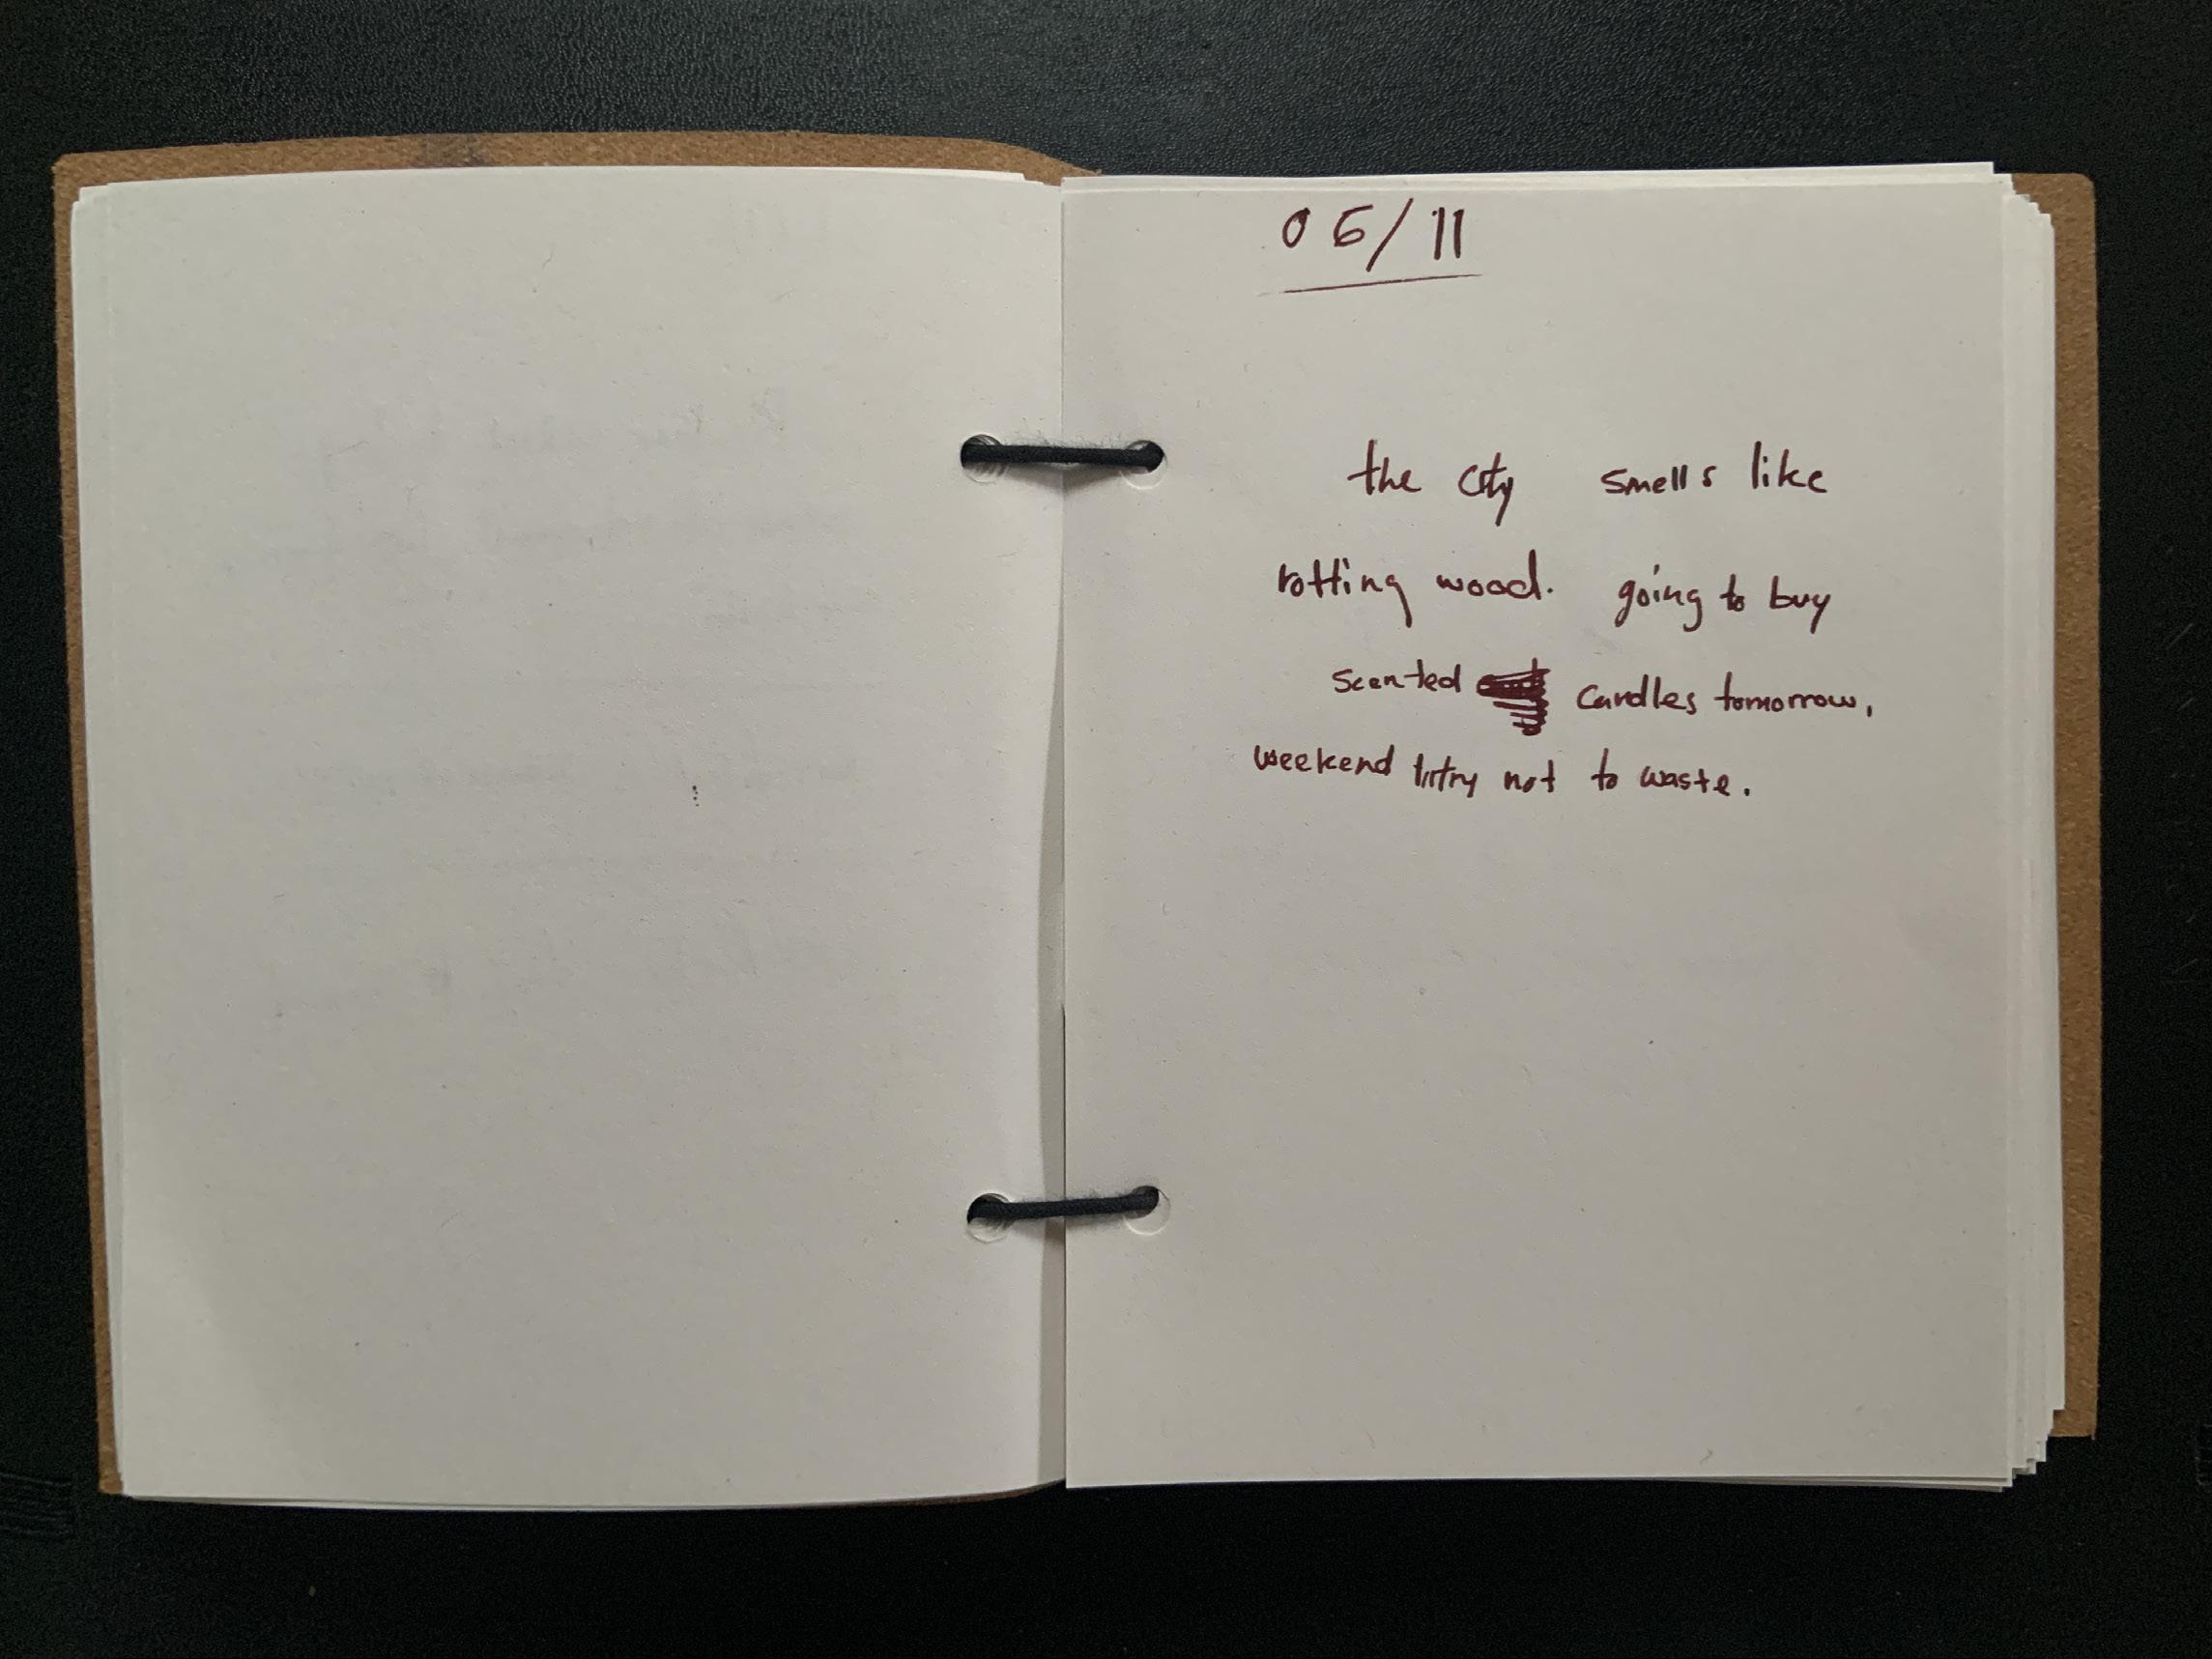 06/11
the city smells like
rotting wood. going to buy
scented candles tomorrow,
weekend not to waste.